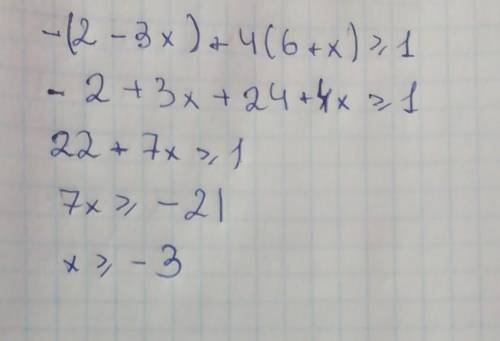 -(2 - 3x) + 4(6 + x) ⩾ 1
- 2 + 3x + 24 + 4x ⩾ 1
22 + 7x ⩾ 1
7x ⩾ - 21
x ⩾ - 3